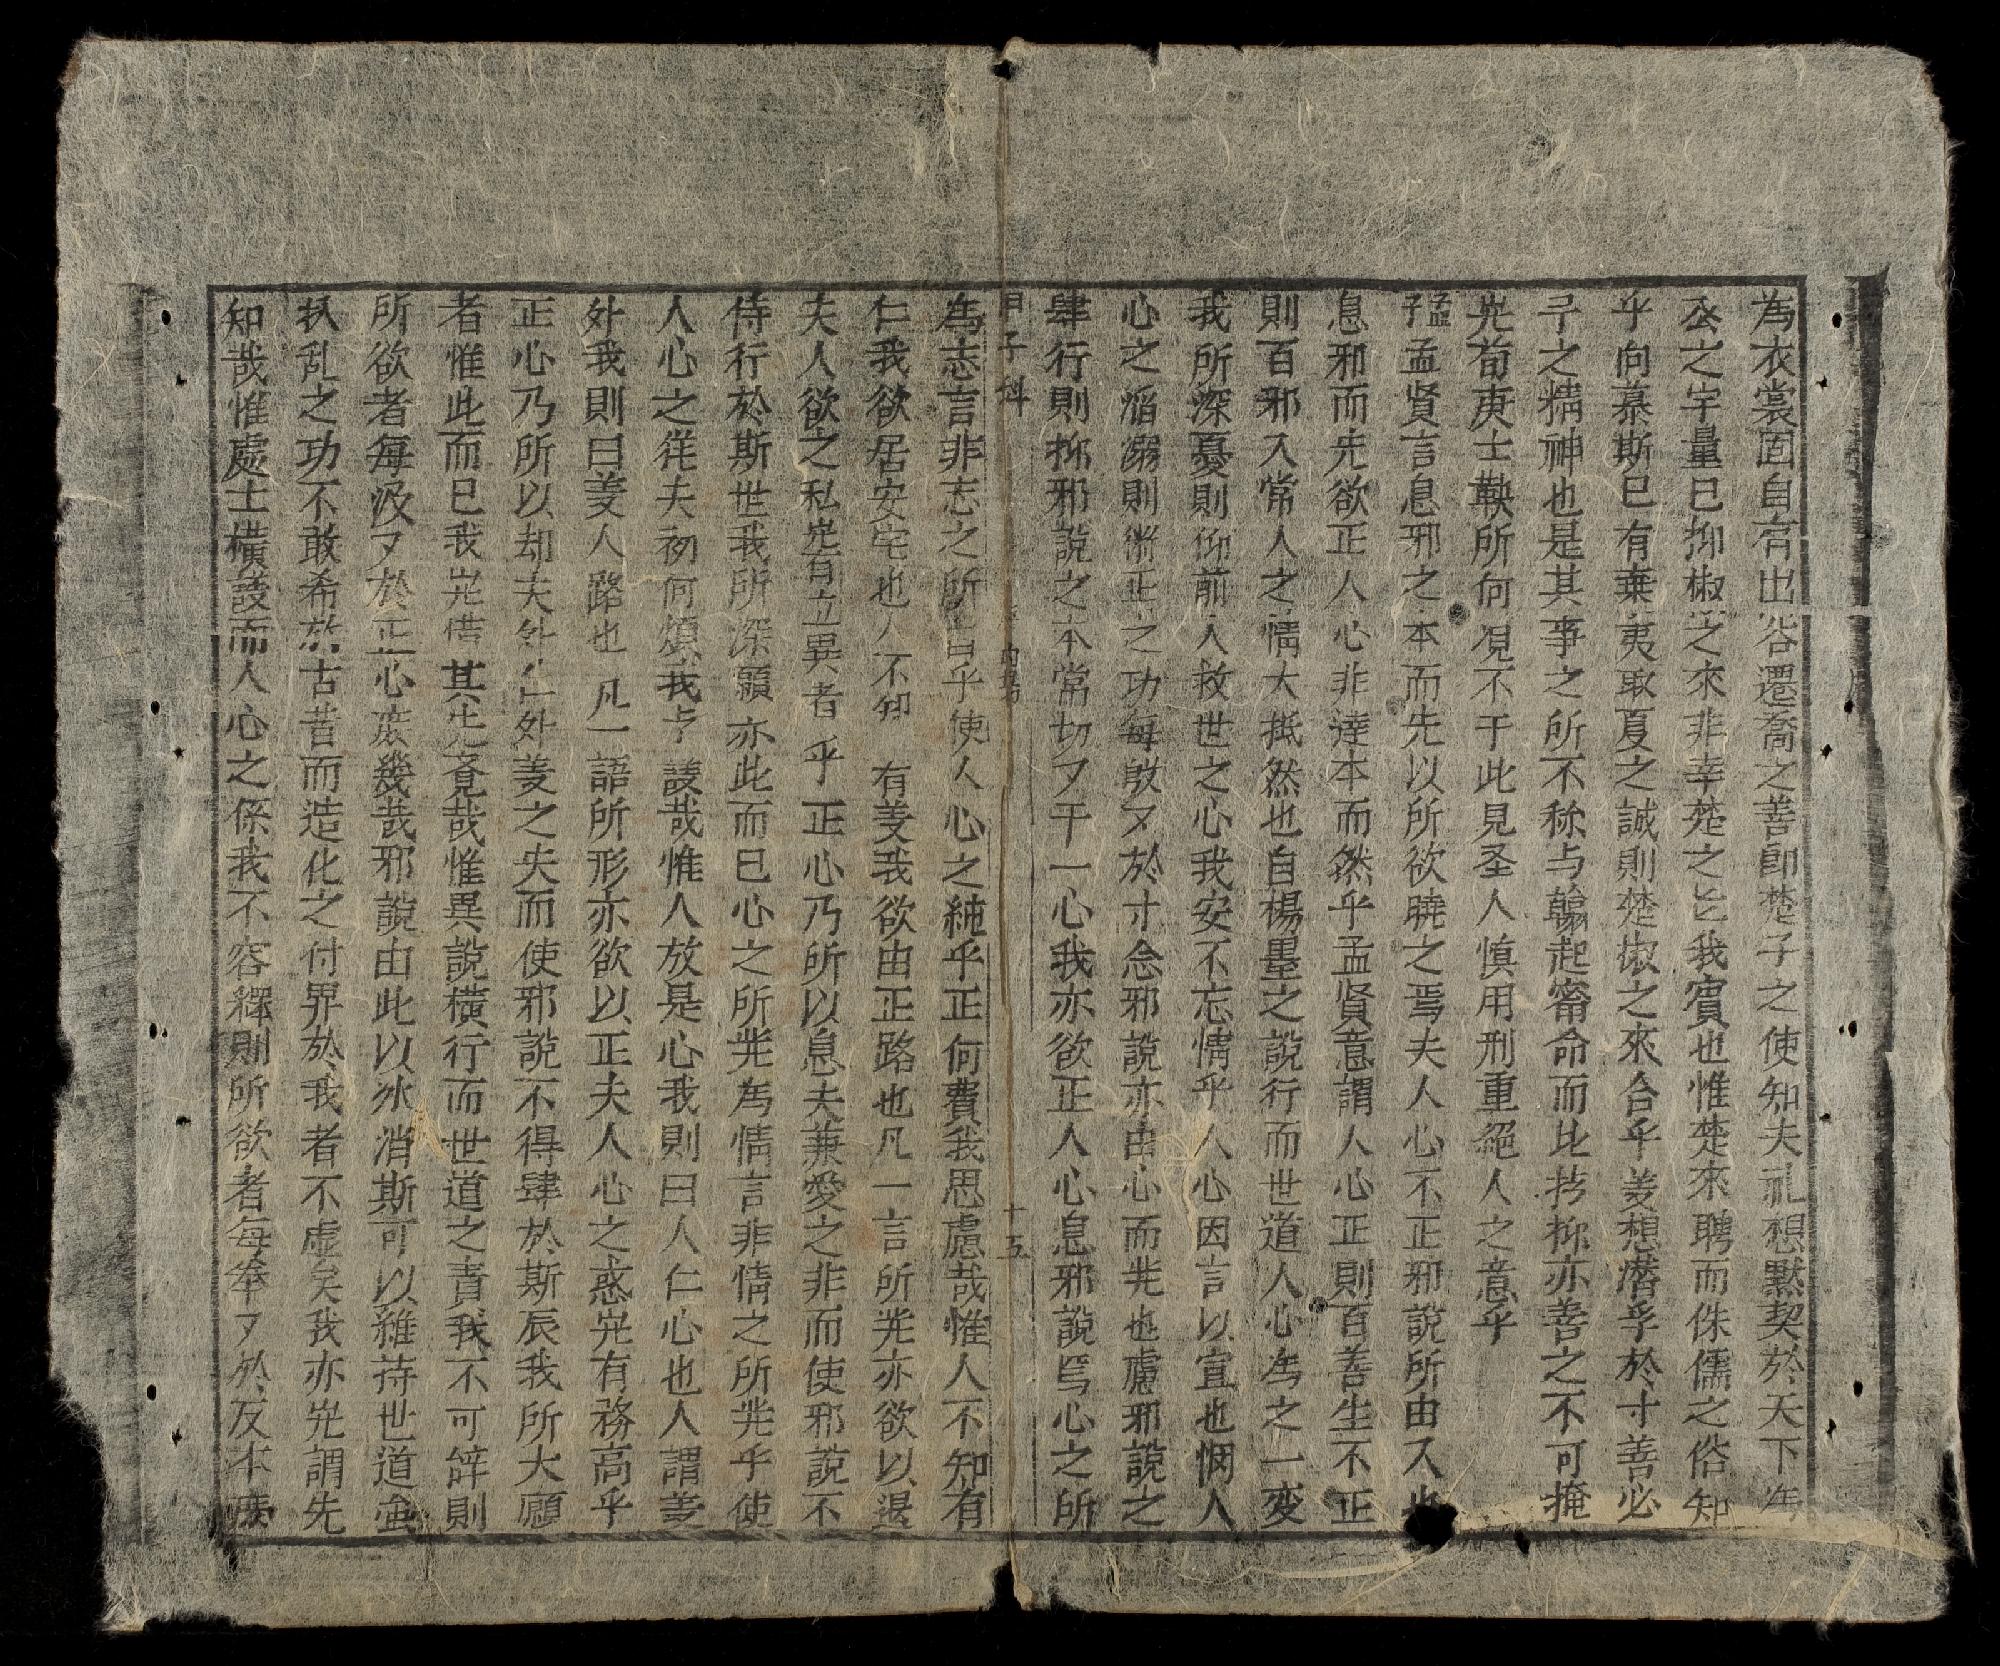 為衣裳固自有出谷遷喬之善即楚子之使知夫礼想默契於天下
公之宇量已抑椒之來非幸楚之也我實也惟楚來聘而侏儒之俗知
乎向慕斯已有棄夷敢夏之誠則楚椒之來合乎姜想潜孚於寸善必
子之精神也是其事之所不称与翰起審命而比抄抑亦善之不可掩
先荀庚士鞅所何見不于此見圣人慎用刑重絕人之意乎
孟孟賢言息邪之本而先以所欲曉之焉夫人心不正邪說所由入也
息邪而先欲正人心非達本而然乎孟賢意謂人心正則百善生不正
則百邪入常人之情大抵然也自楊墨之說行而世道人心為之一变
我所深憂則仰前人救世之心我安不忘情乎人心因言以宣也惘人
心之溺則術正之功每敢又於寸念邪說亦由心而発也慮邪說之
肆行則抑邪說之本常切又于一心我亦欲正人心息邪說焉心之所
甲子科
十五
為志言非志之所言乎使人心之純乎正何費我思慮哉惟人不知有
仁我欲居安宅也人不知有姜我欲由正路也凡一言所発亦欲以退
夫人欲之私岂有立異者乎正心乃所以息夫兼愛之非而使邪說不
侍行於斯世我所深願亦此而已心之所発為情言非情之所発乎使
人心之徃夫初何煩我步護哉惟人放是心我則曰人仁心也人謂姜
外我則曰姜人路也凡一語所形亦欲以正夫人心之惑岂有務高乎
正心乃所以却夫外仁外姜之失而使邪說不得肆於斯辰我所大願
者惟此而已我岂惜其先覺哉惟異說橫行而世道之責我不可辞則
所欲者每汲又於正心庶幾哉邪說由此以冰消斯可以維持世道蚩
扒乱之功不敢希於古昔而造化之付畀於我者不虛矣我亦岂謂先
知哉惟處士橫議而人心之係我不容釋則所欲者每拳又於反本庶